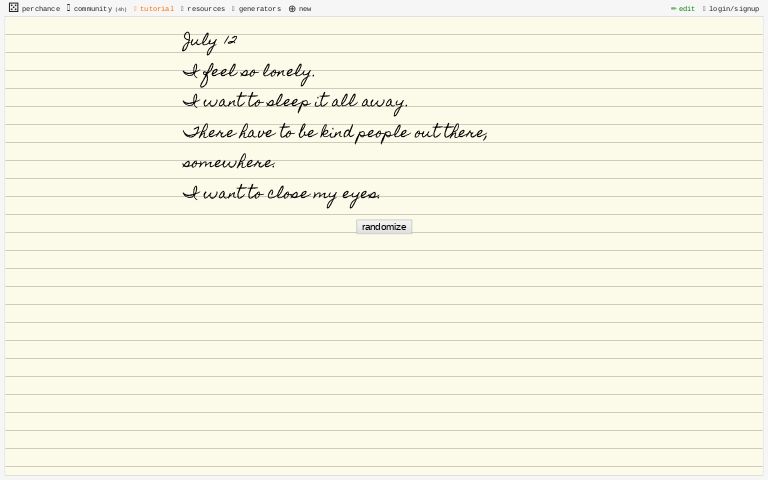 perchance community (4h) tutorial resources generators new edit login/signup
July 12
I feel so lonely.
I want to sleep it all away.
There have to be kind people out there,
somewhere.
I want to close my eyes.
randomize